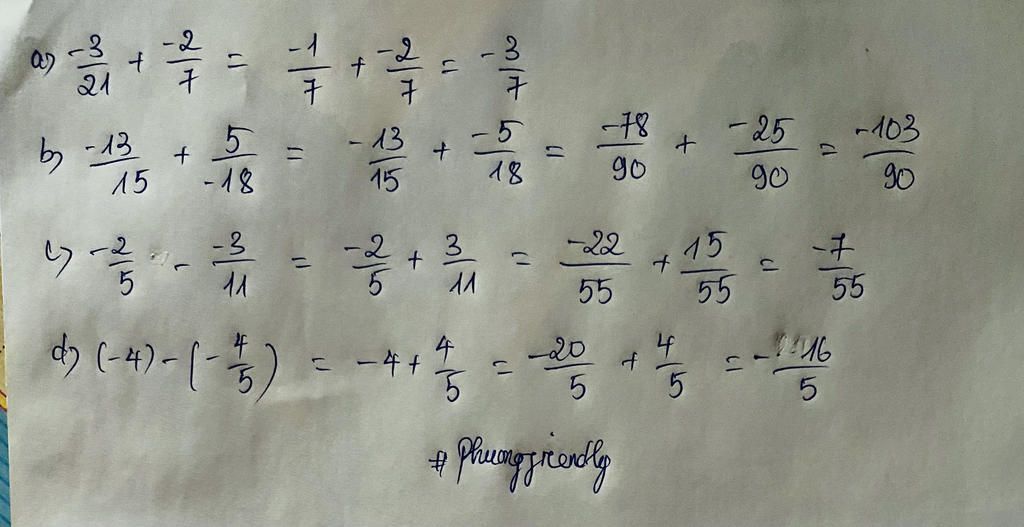 a) -3/21 + -2/7 = -1/7 + -2/7 = -3/7
b) -13/15 + 5/-18 = -13/15 + -5/18 = -78/90 + -25/90 = -103/90
c) -2/5 - -3/11 = -2/5 + 3/11 = -22/55 + 15/55 = -7/55
d) (-4) - (-4/5) = -4 + 4/5 = -20/5 + 4/5 = -16/5
# Phuongfriendly